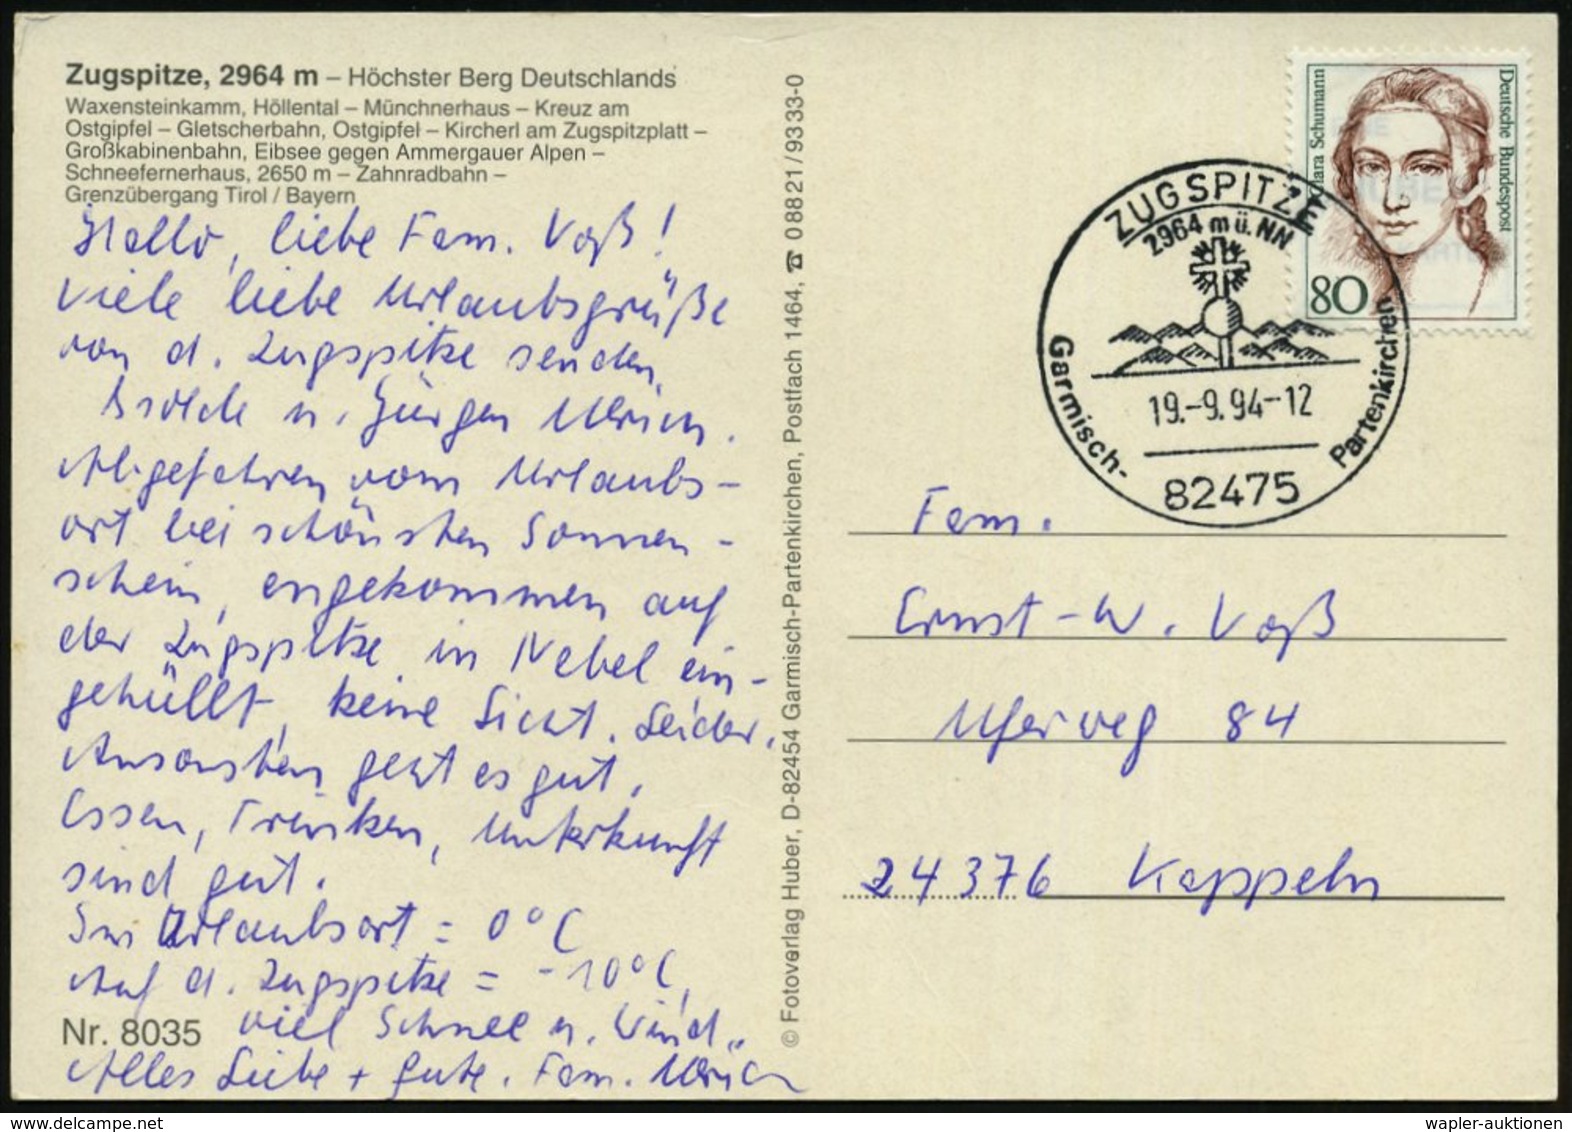 Zugspitze, 2964 m – Höchster Berg Deutschlands
Waxensteinkamm, Höllental – Münchnerhaus – Kreuz am
Ostgipfel – Gletscherbahn, Ostgipfel – Kircherl am Zugspitzplatt –
Großkabinenbahn, Eibsee gegen Ammergauer Alpen –
Schneefernerhaus, 2650 m – Zahnradbahn –
Grenzübergang Tirol / Bayern
Hallo, liebe Fam. Voß!
Viele liebe Urlaubsgrüße
von d. Zugspitze senden
Isolde u. Jürgen Ulrich.
Abgefahren vom Urlaubs-
ort bei schönsten Sonnen-
schein, angekommen auf
der Zugspitze in Nebel ein-
gehüllt, keine Sicht. Leider.
Ansonsten geht es gut.
Essen, Trinken, Unterkunft
sind gut.
Im Urlaubsort = 0°C
Auf d. Zugspitze = -10°C,
viel Schnee u. Wind..
Nr. 8035
Alles Liebe + gute. Fam. Ulrich
© Fotoverlag Huber, D-82454 Garmisch-Partenkirchen, Postfach 1464, ☎ 08821/9333-0
Deutsche Bundespost
Clara Schumann
80
ZUGSPITZE
2964 m ü. NN
19.-9.94-12
Garmisch-
Partenkirchen
82475
Fam.
Ernst-W. Voß
Uferweg 84
24376 Kappeln
wapler-auktionen